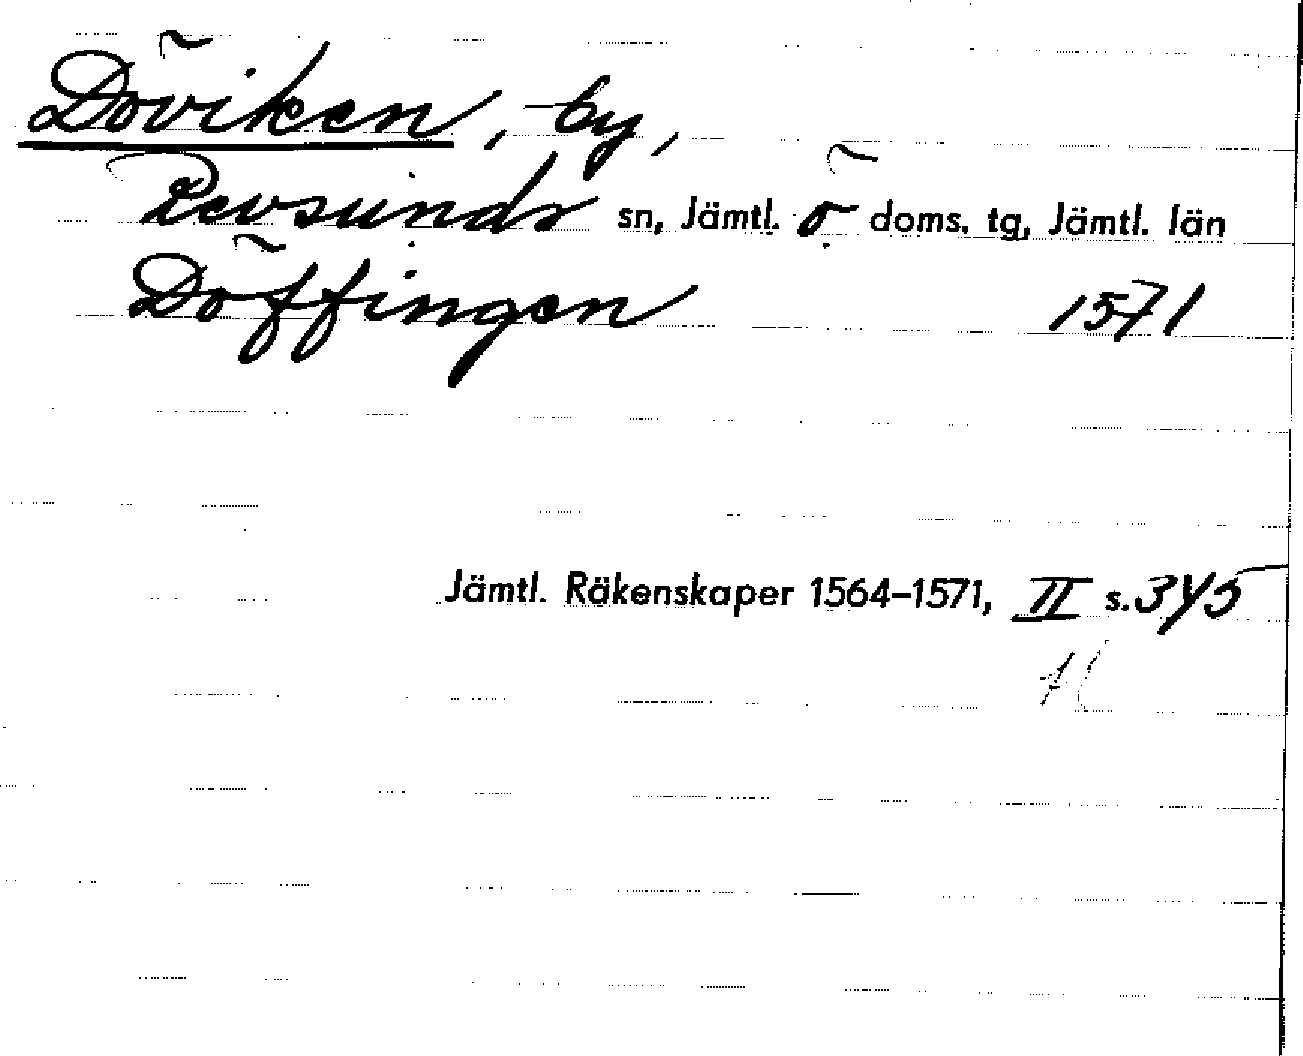 Döviken, by,
Revsunds sn, Jämtl. ö doms. tg, Jämtl. län
Döffingen 1571
Jämtl. Räkenskaper 1564–1571, II s. 345